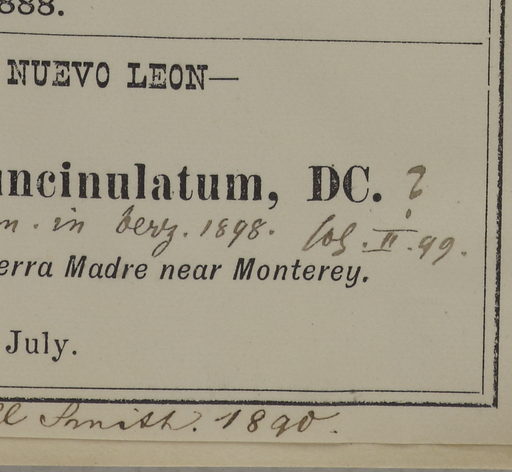 888.
NUEVO LEON—
uncinulatum, DC. ?
n. in herb. 1898. Cog. II. 99.
erra Madre near Monterey.
July.
ll Smith. 1890.